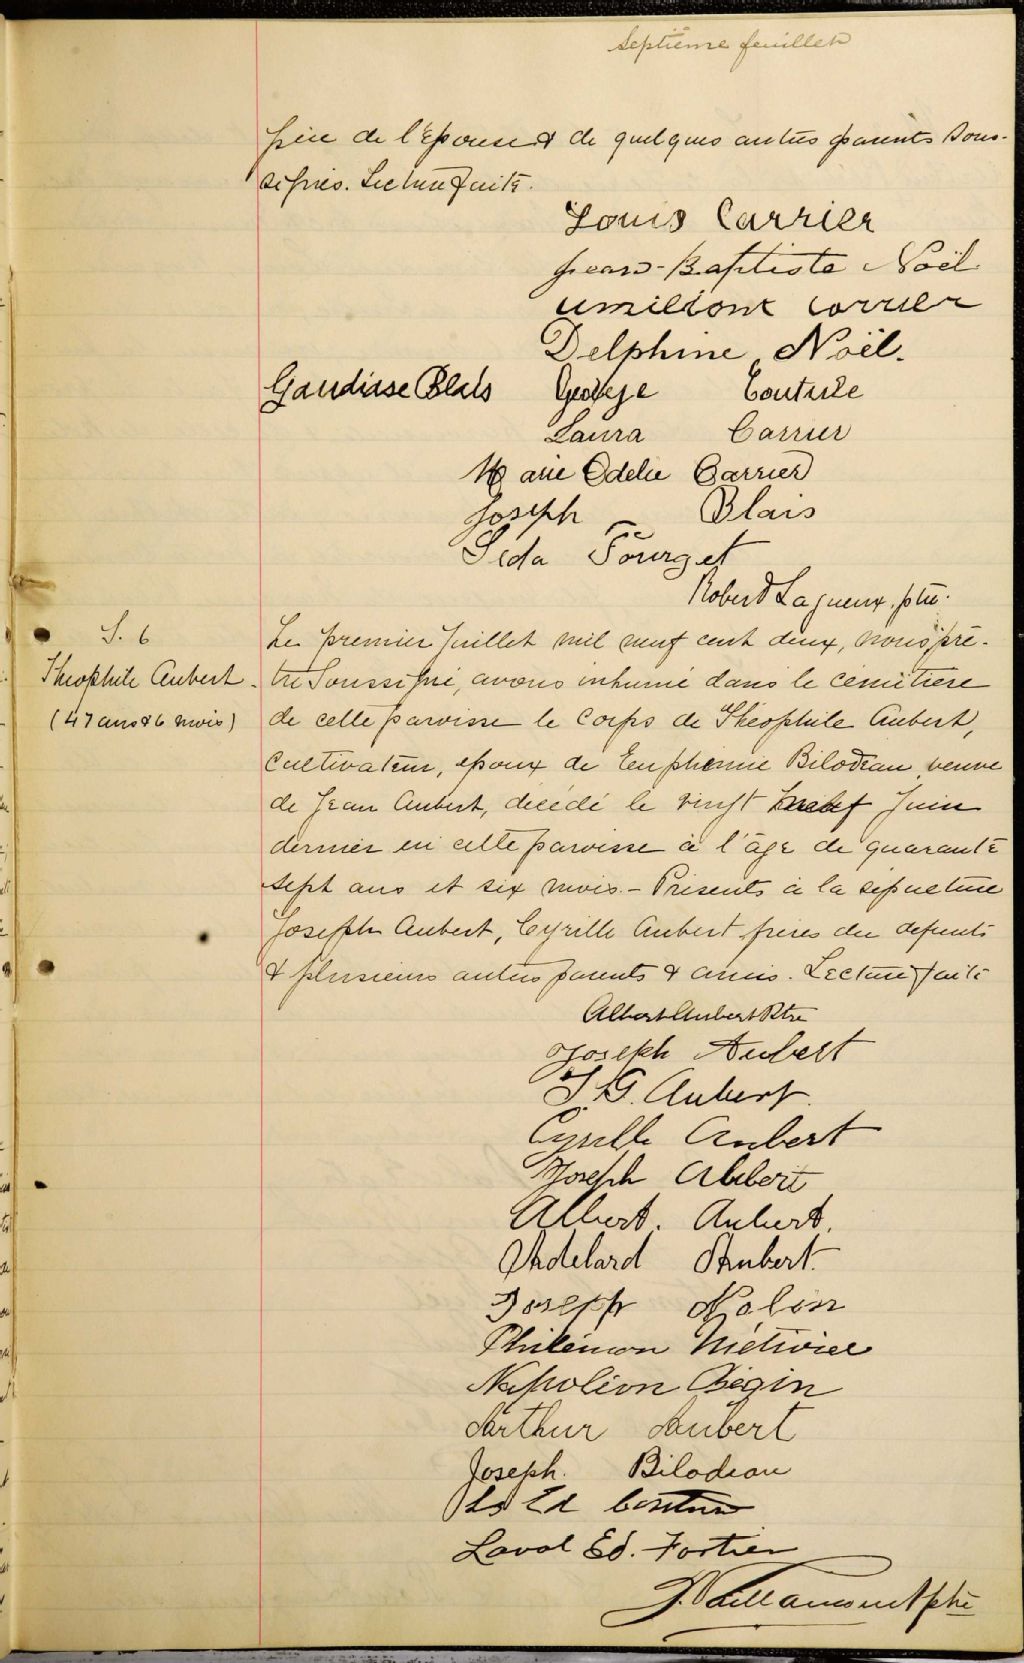 Septième feuillet
père de l'Epouse & de quelques autres parents sous-
signés. Lecture faite.
Louis Carrier
Jean-Baptiste Noël
Carrier
Delphine Noël.
Gaudiose Blais George Couture
Laura Carrier
Marie Odelie Carrier
Joseph Blais
Lida Fourget
Robert Lagueux, ptre.
S. 6
Théophile Aubert
(47 ans & 6 mois)
Le premier Juillet mil neuf cent deux, nous prê-
tre Soussigné, avons inhumé dans le cimetière
de cette paroisse le corps de Théophile Aubert,
cultivateur, epoux de Euphémie Bilodeau veuve
de Jean Aubert, décédé le vingt neuf Juin
dernier en cette paroisse à l'âge de quarante
sept ans et six mois. - Présents à la sépulture
Joseph Aubert, Cyrille Aubert frères du defunt
& plusieurs autres parents & amis. Lecture faite
Albert Aubert Ptre
Joseph Aubert
J. G. Aubert.
Cyrille Aubert
Joseph Aubert
Albert. Aubert.
Adelard Aubert.
Joseph Nolin
Philémon Métivier
Napoléon Bégin
Arthur Aubert
Joseph. Bilodeau
Ls Ed Couture
Laval Ed. Fortier
Vaillancourt ptre